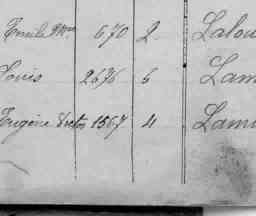 Emile Mce 670 2 Lalou
Louis 2676 6 Lam
Eugène Victor 1567 4 Lamu